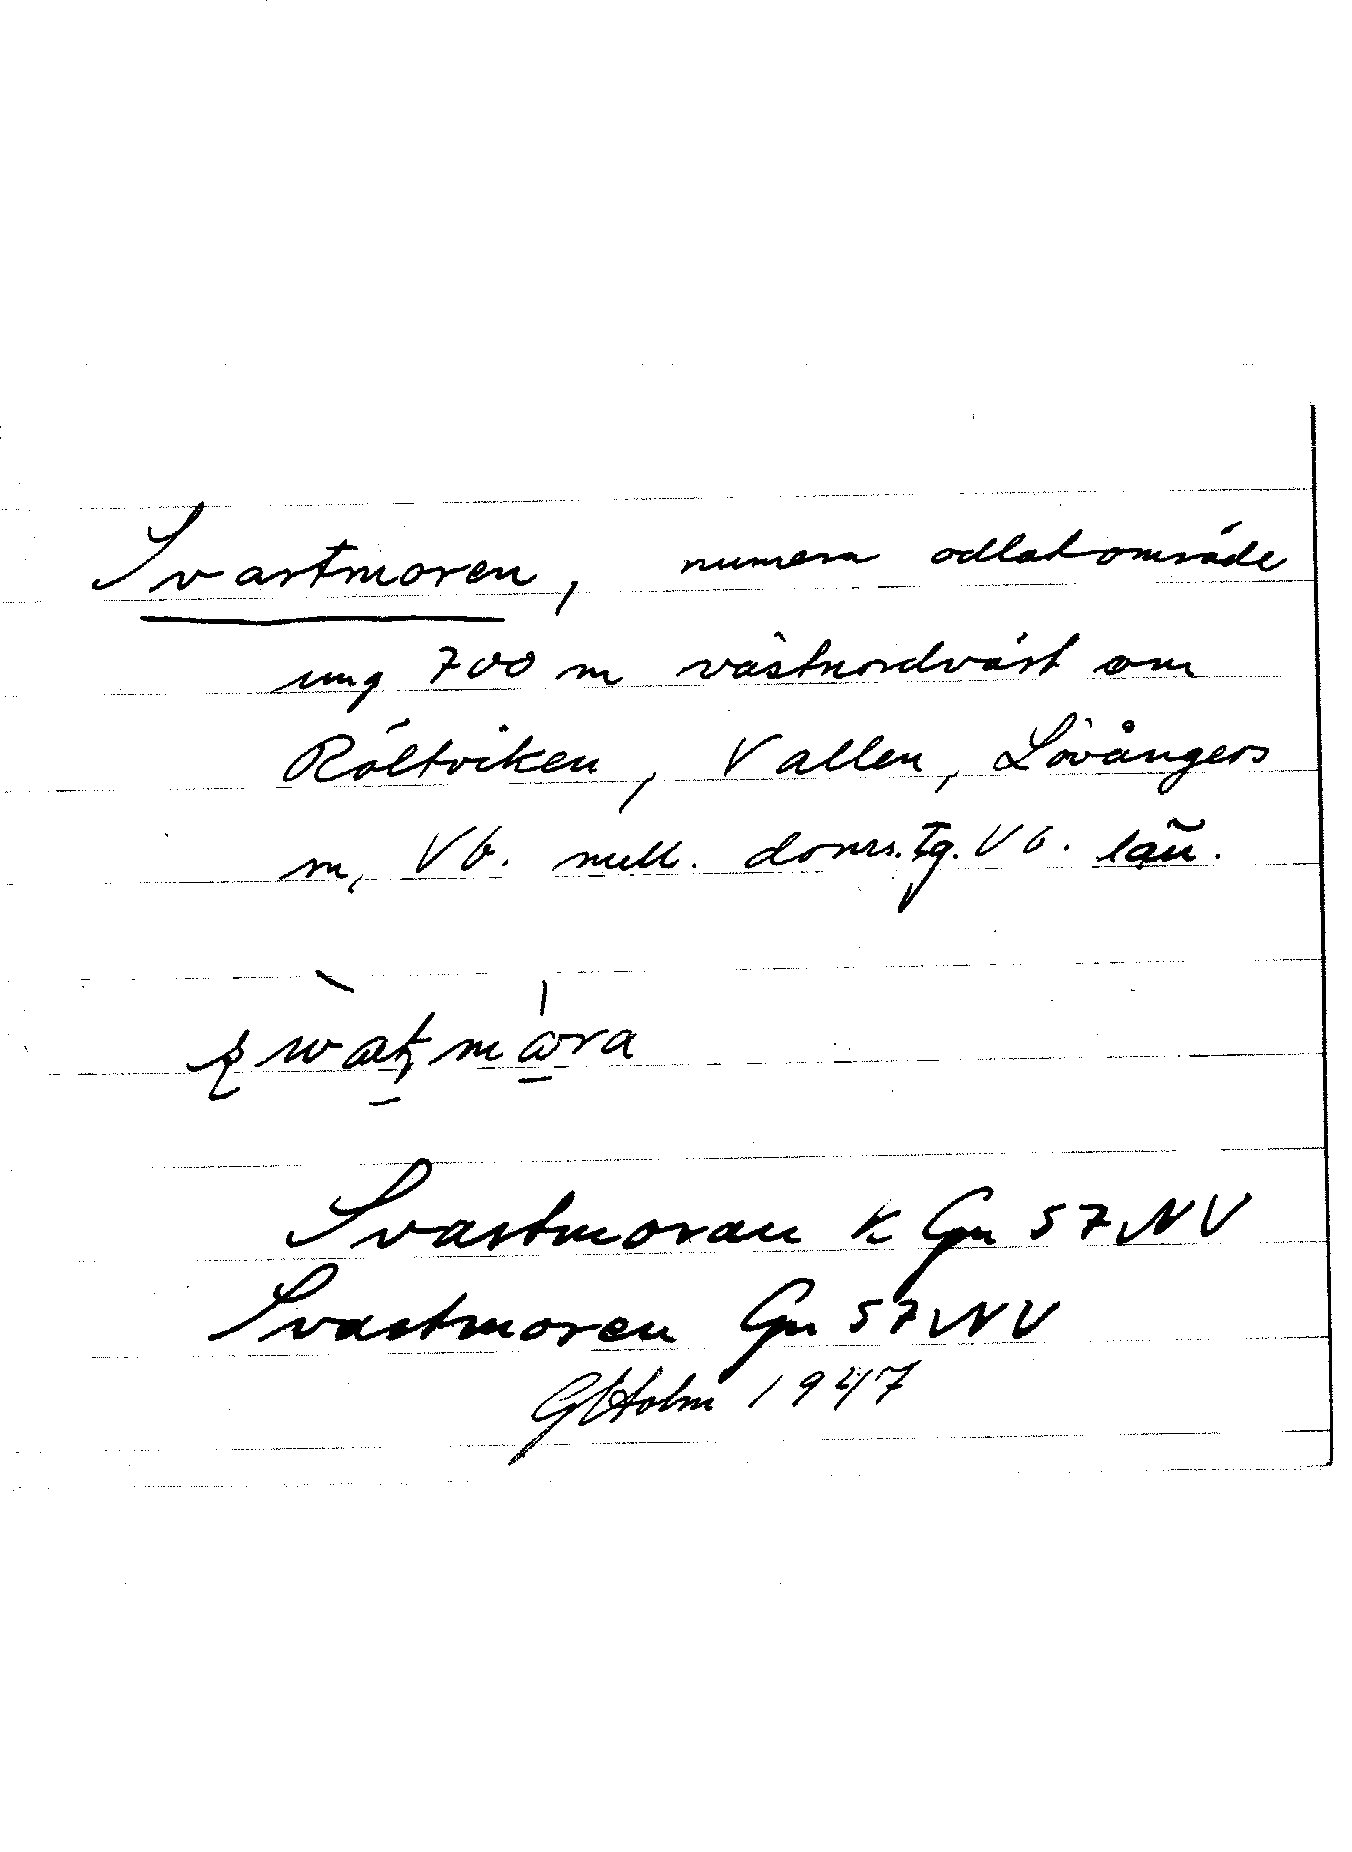 Svartmoren, numera odlat område
ung 700 m västnordväst om
Röltviken, Vallen, Lövångers
sn, Vb. mell. doms. Tg. Vb. län.
Svartmoran k Gn 57 NV
Svartmoren Gn 57 NV
G Holm 1947